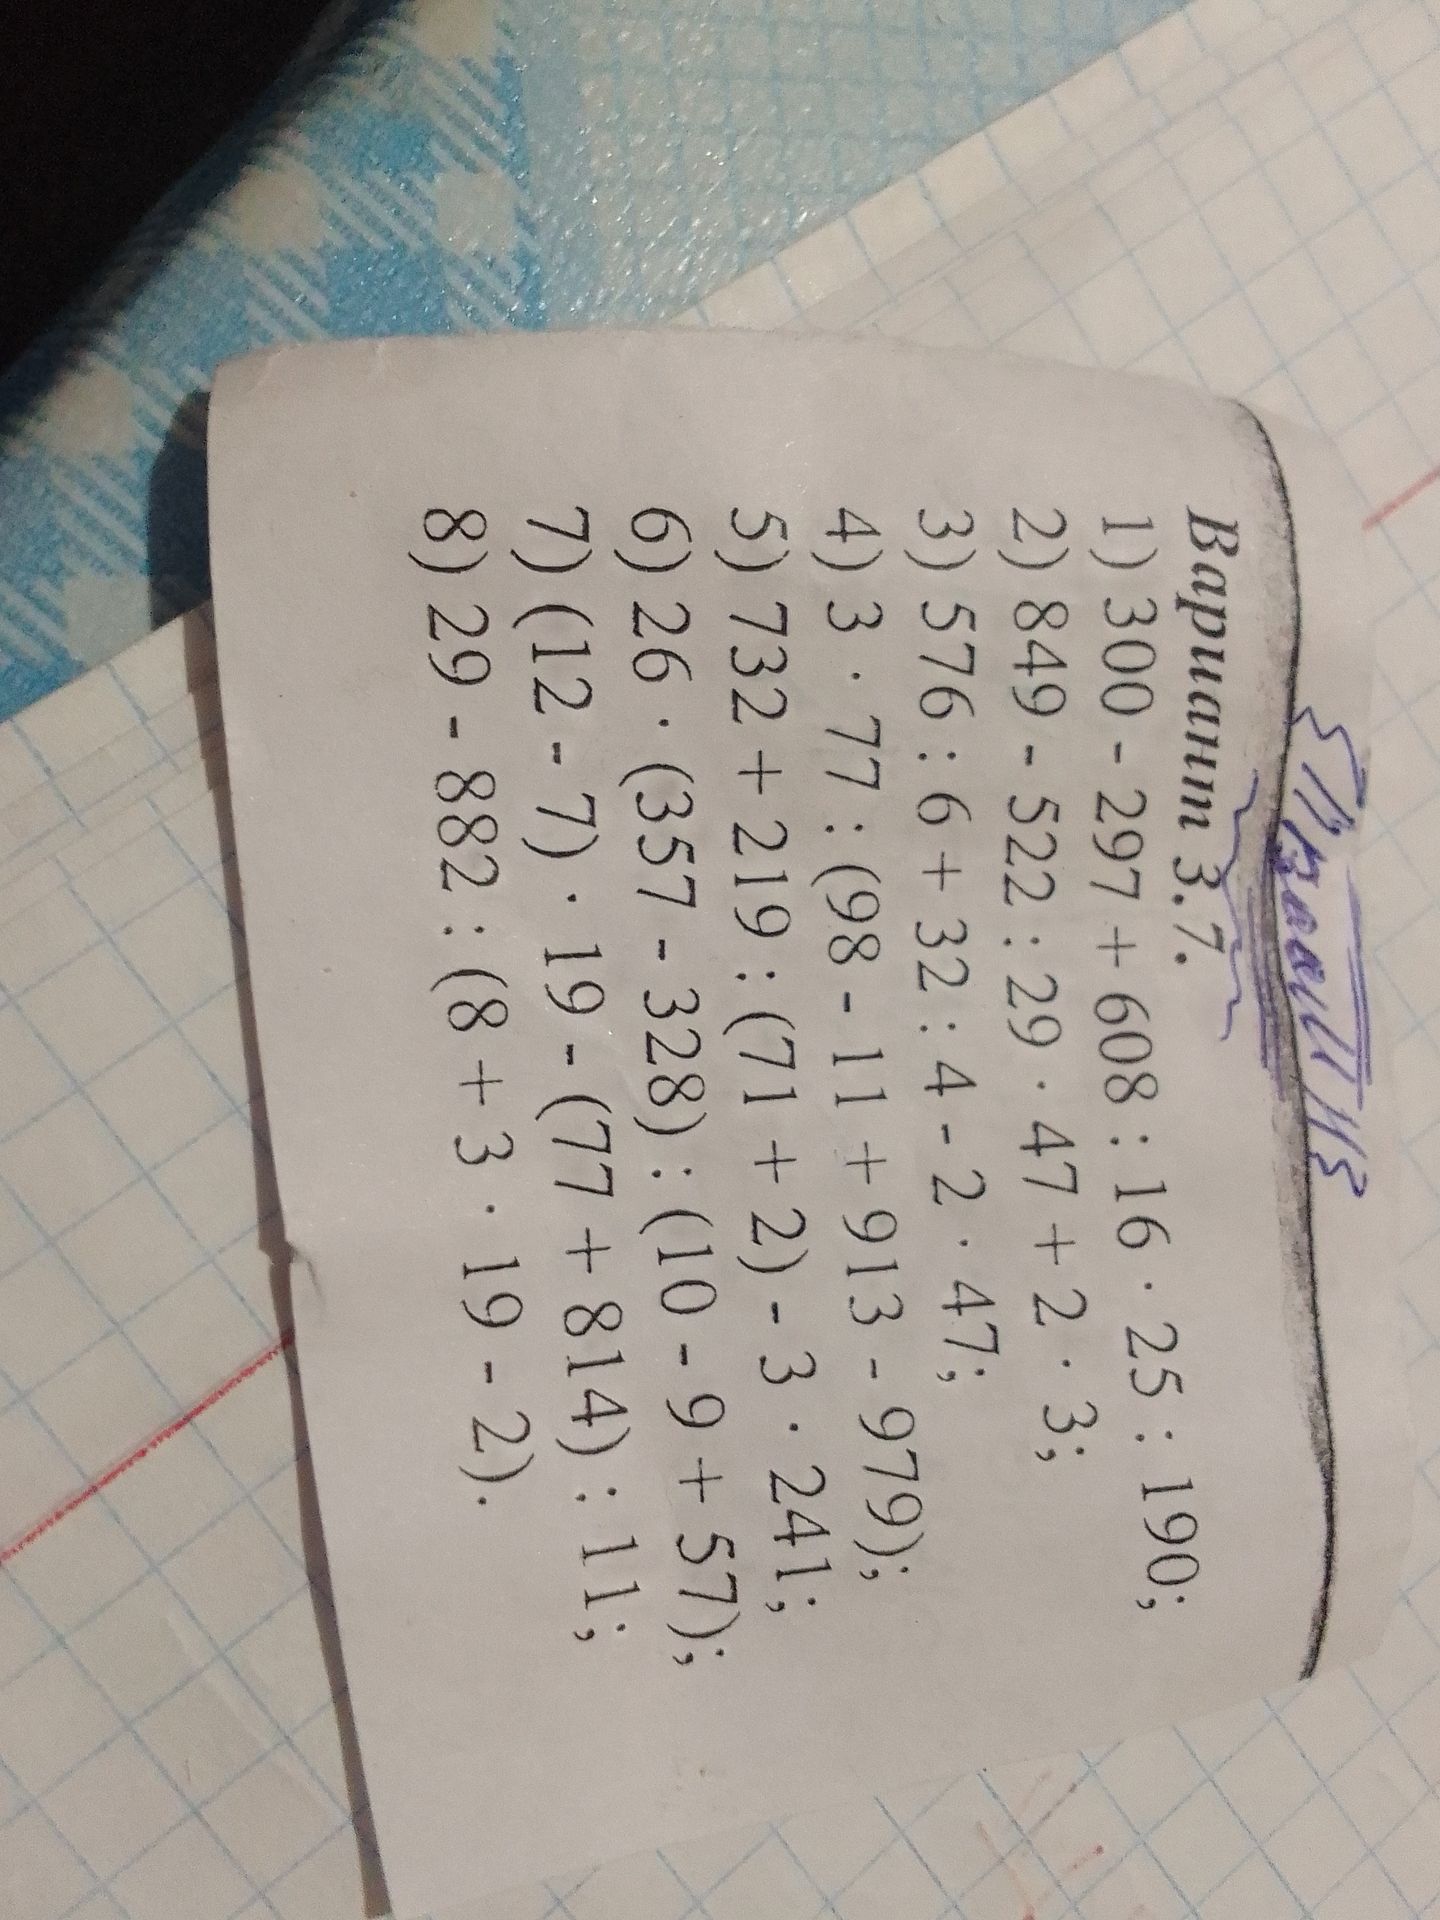 Вариант 3.7.
1) 300 - 297 + 608 : 16 · 25 : 190;
2) 849 - 522 : 29 · 47 + 2 · 3;
3) 576 : 6 + 32 : 4 - 2 · 47;
4) 3 · 77 : (98 - 11 + 913 - 979);
5) 732 + 219 : (71 + 2) - 3 · 241;
6) 26 · (357 - 328) : (10 - 9 + 57);
7) (12 - 7) · 19 - (77 + 814) : 11;
8) 29 - 882 : (8 + 3 · 19 - 2).